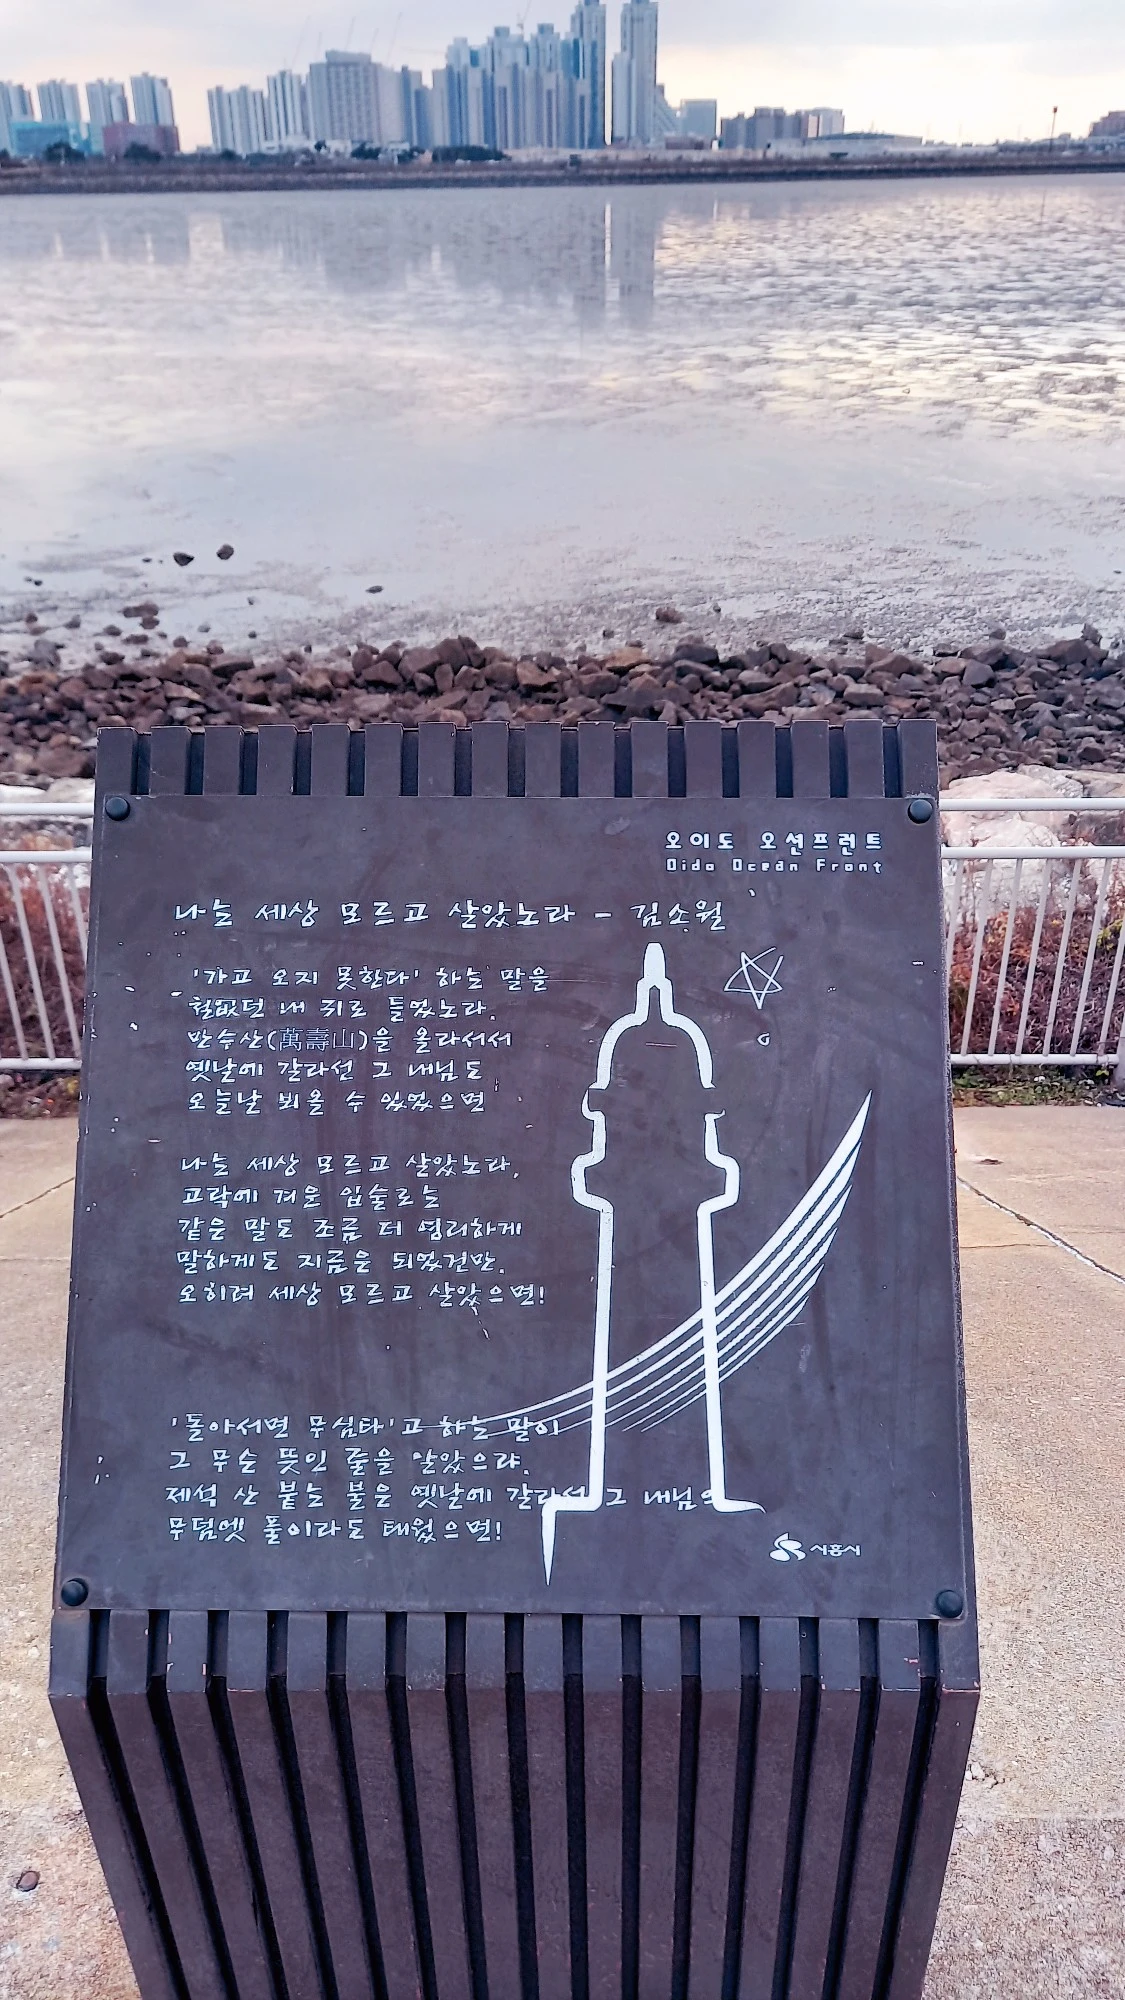 오이도 오션프런트
Oido Ocean Front
나는 세상 모르고 살았노라 - 김소월
'가고 오지 못한다' 하는 말을
철없던 내 귀로 들었노라.
만수산(萬壽山)을 올라서서
옛날에 갈라선 그 내님도
오늘날 뵈올 수 있었으면
나는 세상 모르고 살았노라,
고락에 겨운 입술로는
같은 말도 조금 더 영리하게
말하게도 지금은 되었건만.
오히려 세상 모르고 살았으면!
'돌아서면 무심타'고 하는 말이
그 무슨 뜻인 줄을 알았으랴.
제석 산 붙는 불은 옛날에 갈라선 그 내님의
무덤엣 풀이라도 태웠으면!
시흥시